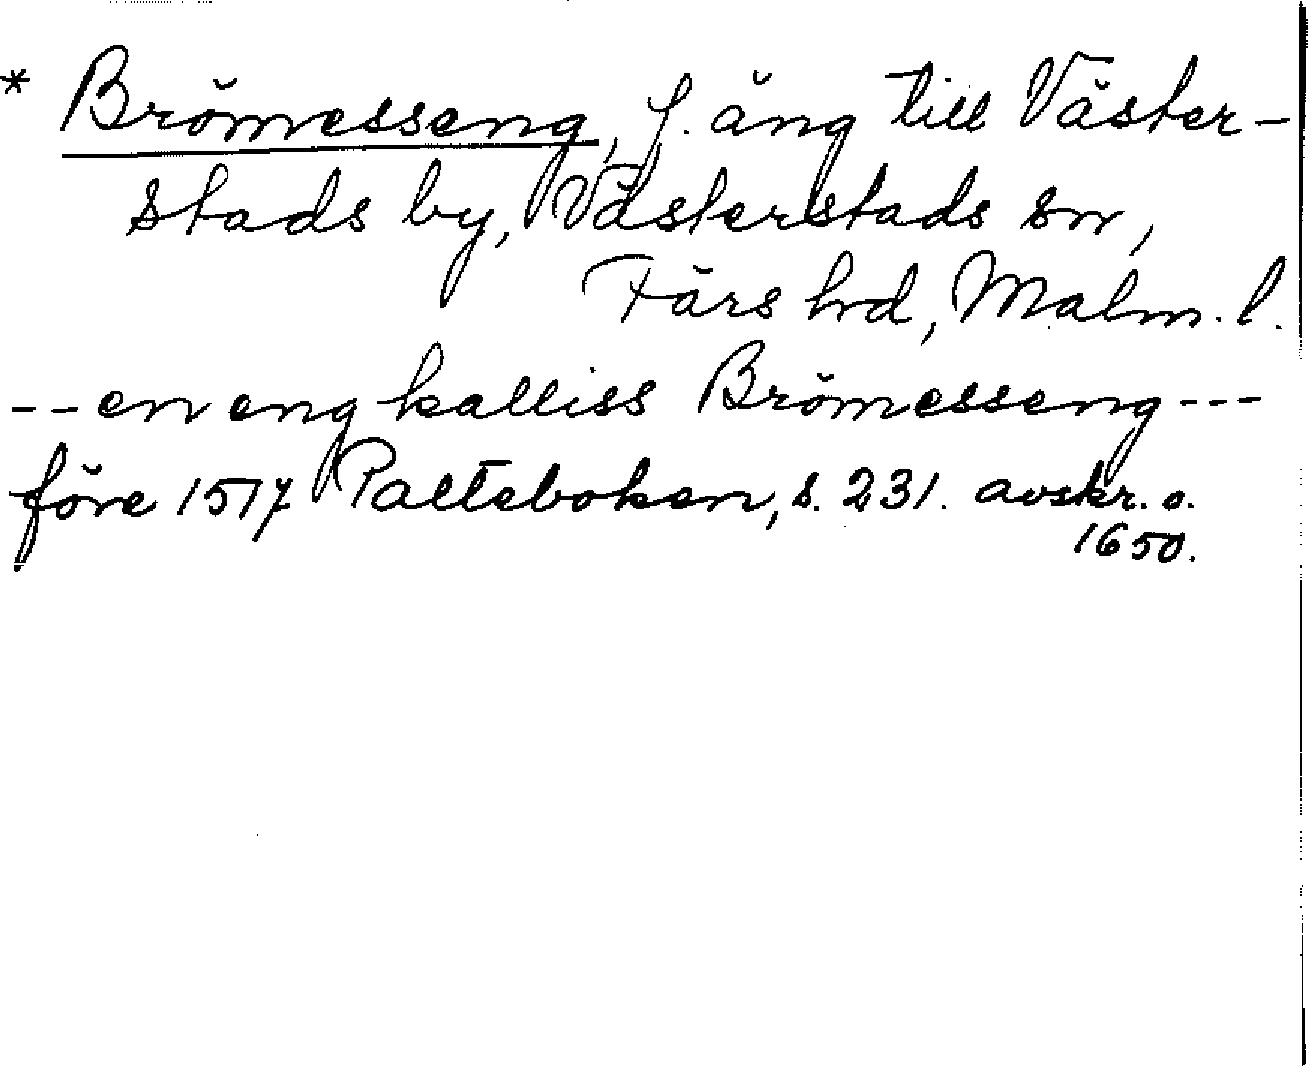 * Brömesseng, f. äng till Väster-
stads by, Västerstads sn,
Färs hd, Malm. l.
-- en eng kalliss Brömesseng ---
före 1517 Palteboken, s. 231. avskr. o.
1650.